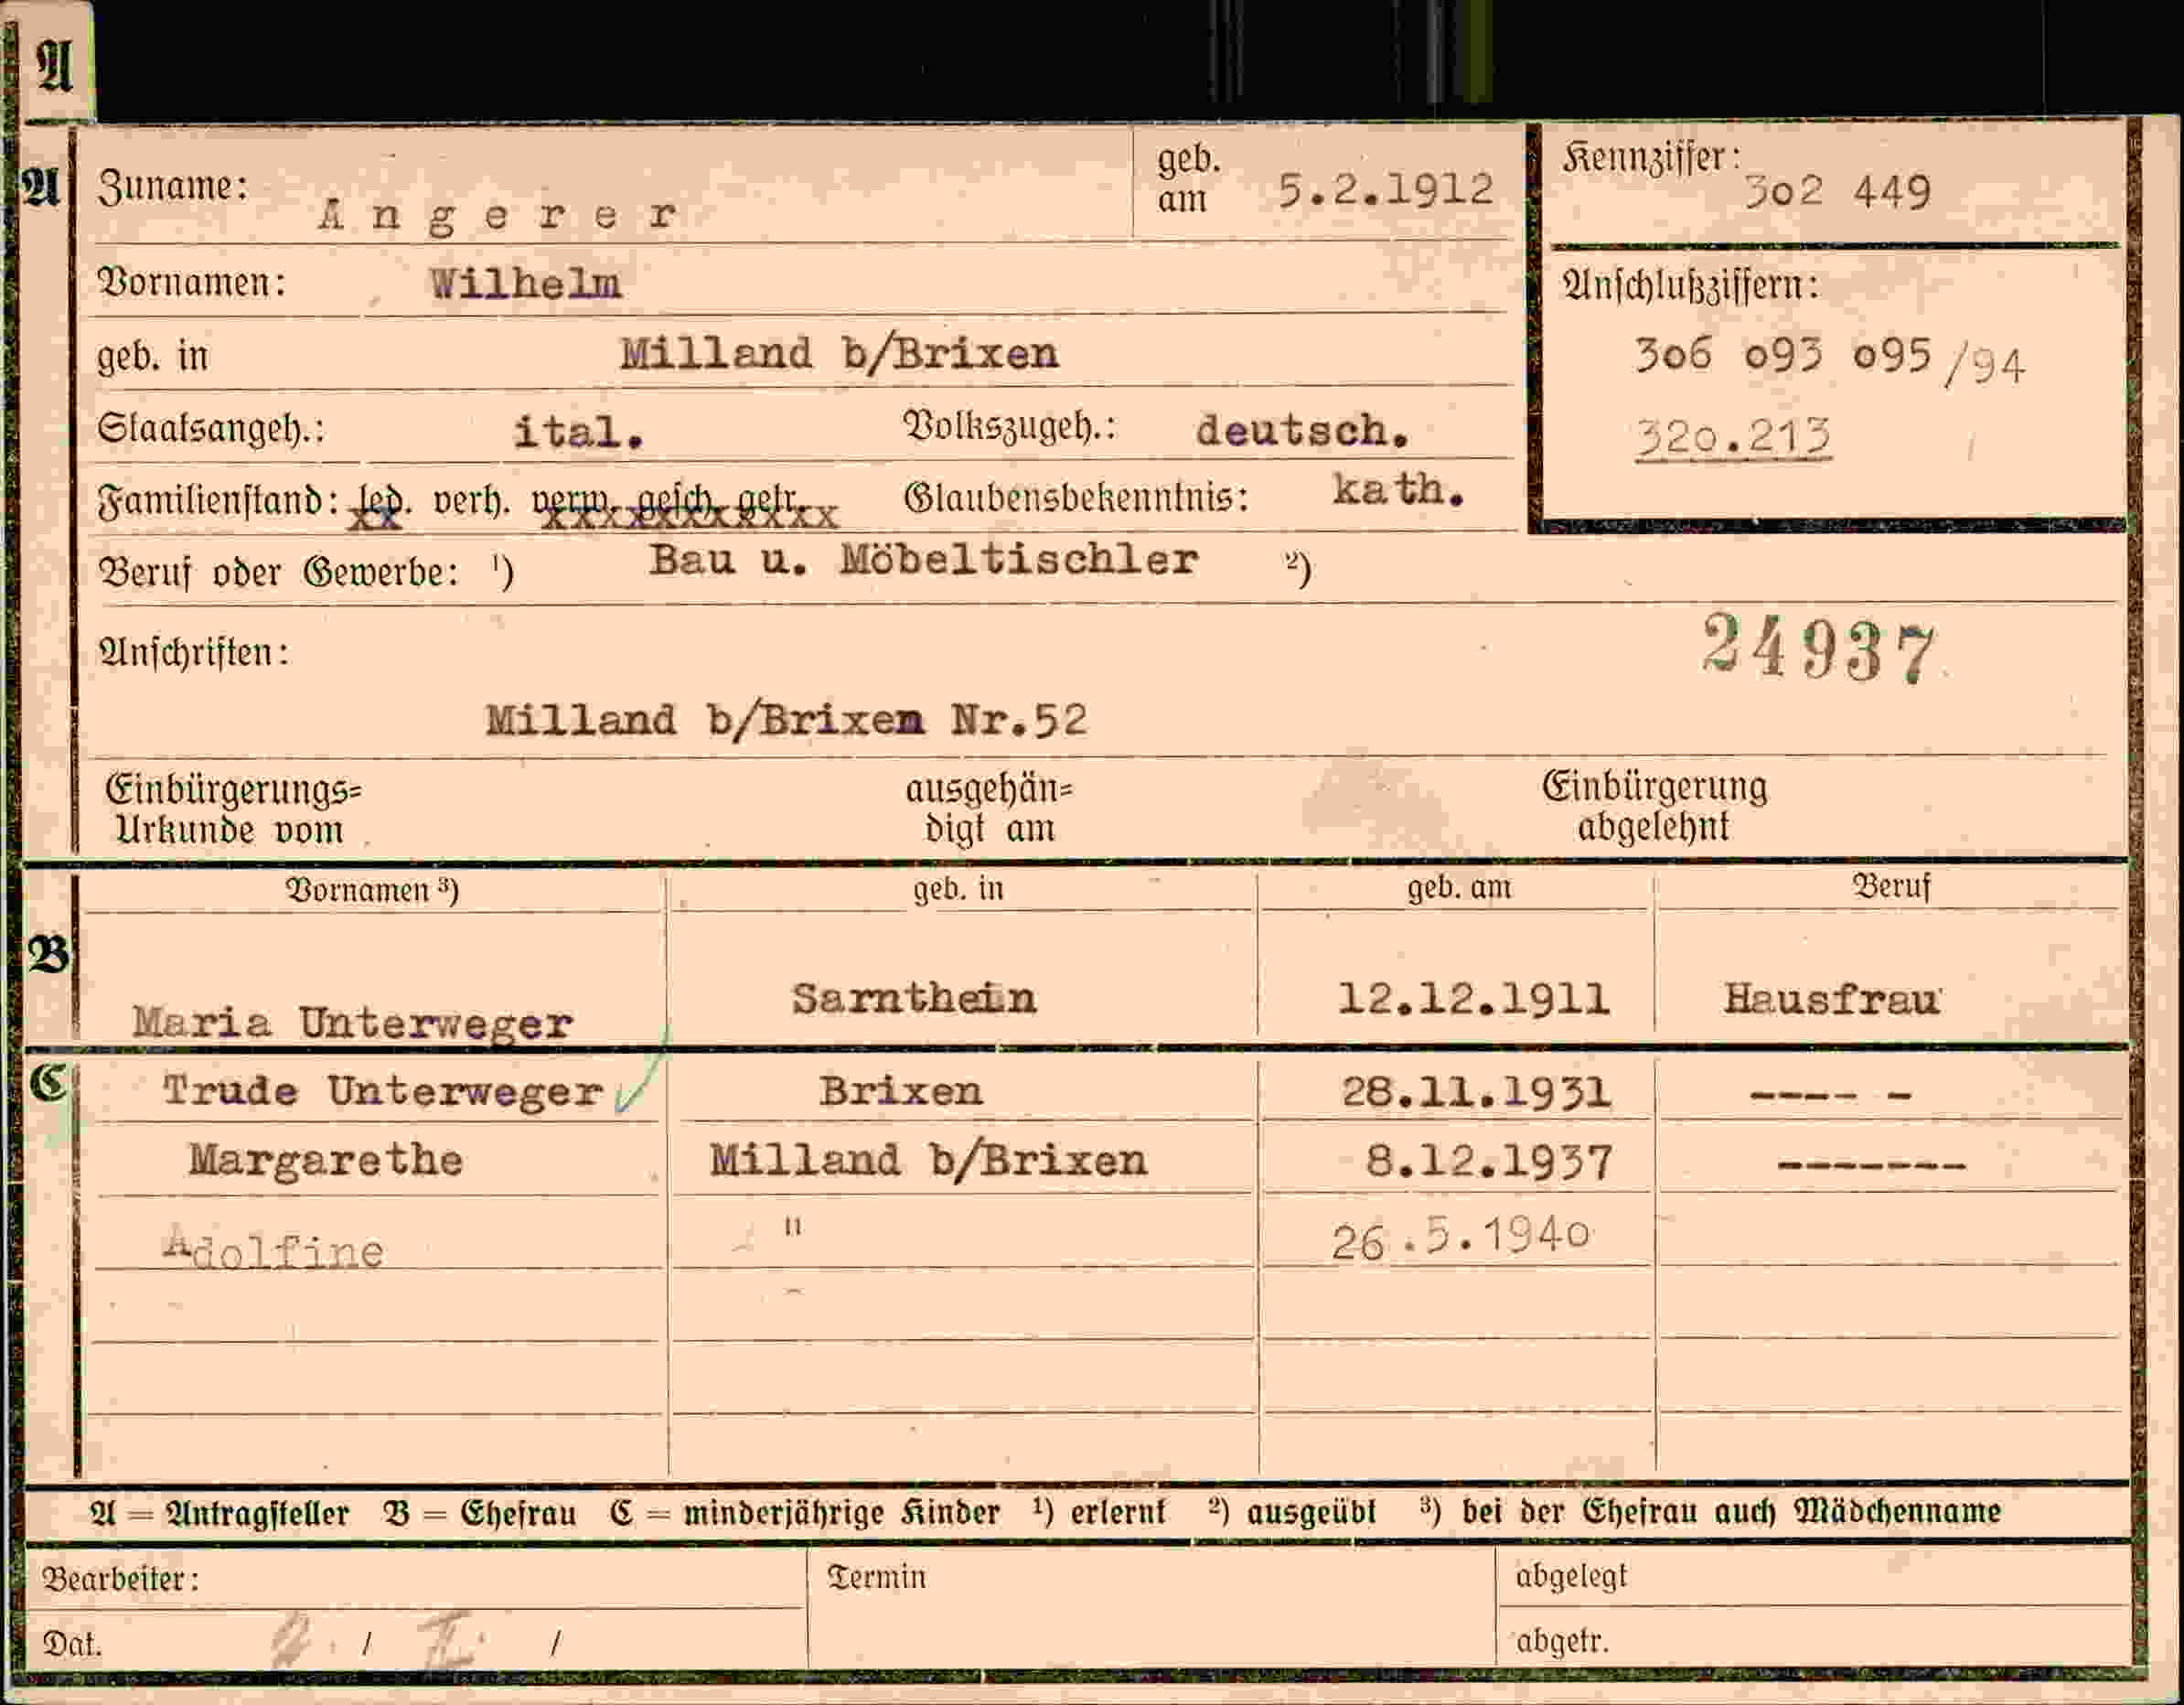 A
A Zuname: Angerer geb. am 5.2.1912 Kennziffer: 3o2 449
Vornamen: Wilhelm Anschlußziffern:
geb. in Milland b/Brixen 3o6 o93 o95 /94
Staatsangeh.: ital. Volkszugeh.: deutsch. 32o.213
Familienstand: led. verh. verw. gesch. getr. Glaubensbekenntnis: kath.
Beruf oder Gewerbe: ¹) Bau u. Möbeltischler ²)
Anschriften: 24937
Milland b/Brixen Nr.52
Einbürgerungs= ausgehän= Einbürgerung
Urkunde vom digt am abgelehnt
Vornamen ³) geb. in geb. am Beruf
B Maria Unterweger Sarnthein 12.12.1911 Hausfrau
C Trude Unterweger Brixen 28.11.1931 ---- -
Margarethe Milland b/Brixen 8.12.1937 -------
Adolfine " 26.5.194o
A = Antragsteller B = Ehefrau C = minderjährige Kinder ¹) erlernt ²) ausgeübt ³) bei der Ehefrau auch Mädchenname
Bearbeiter: Termin abgelegt
Dat. / / abgetr.